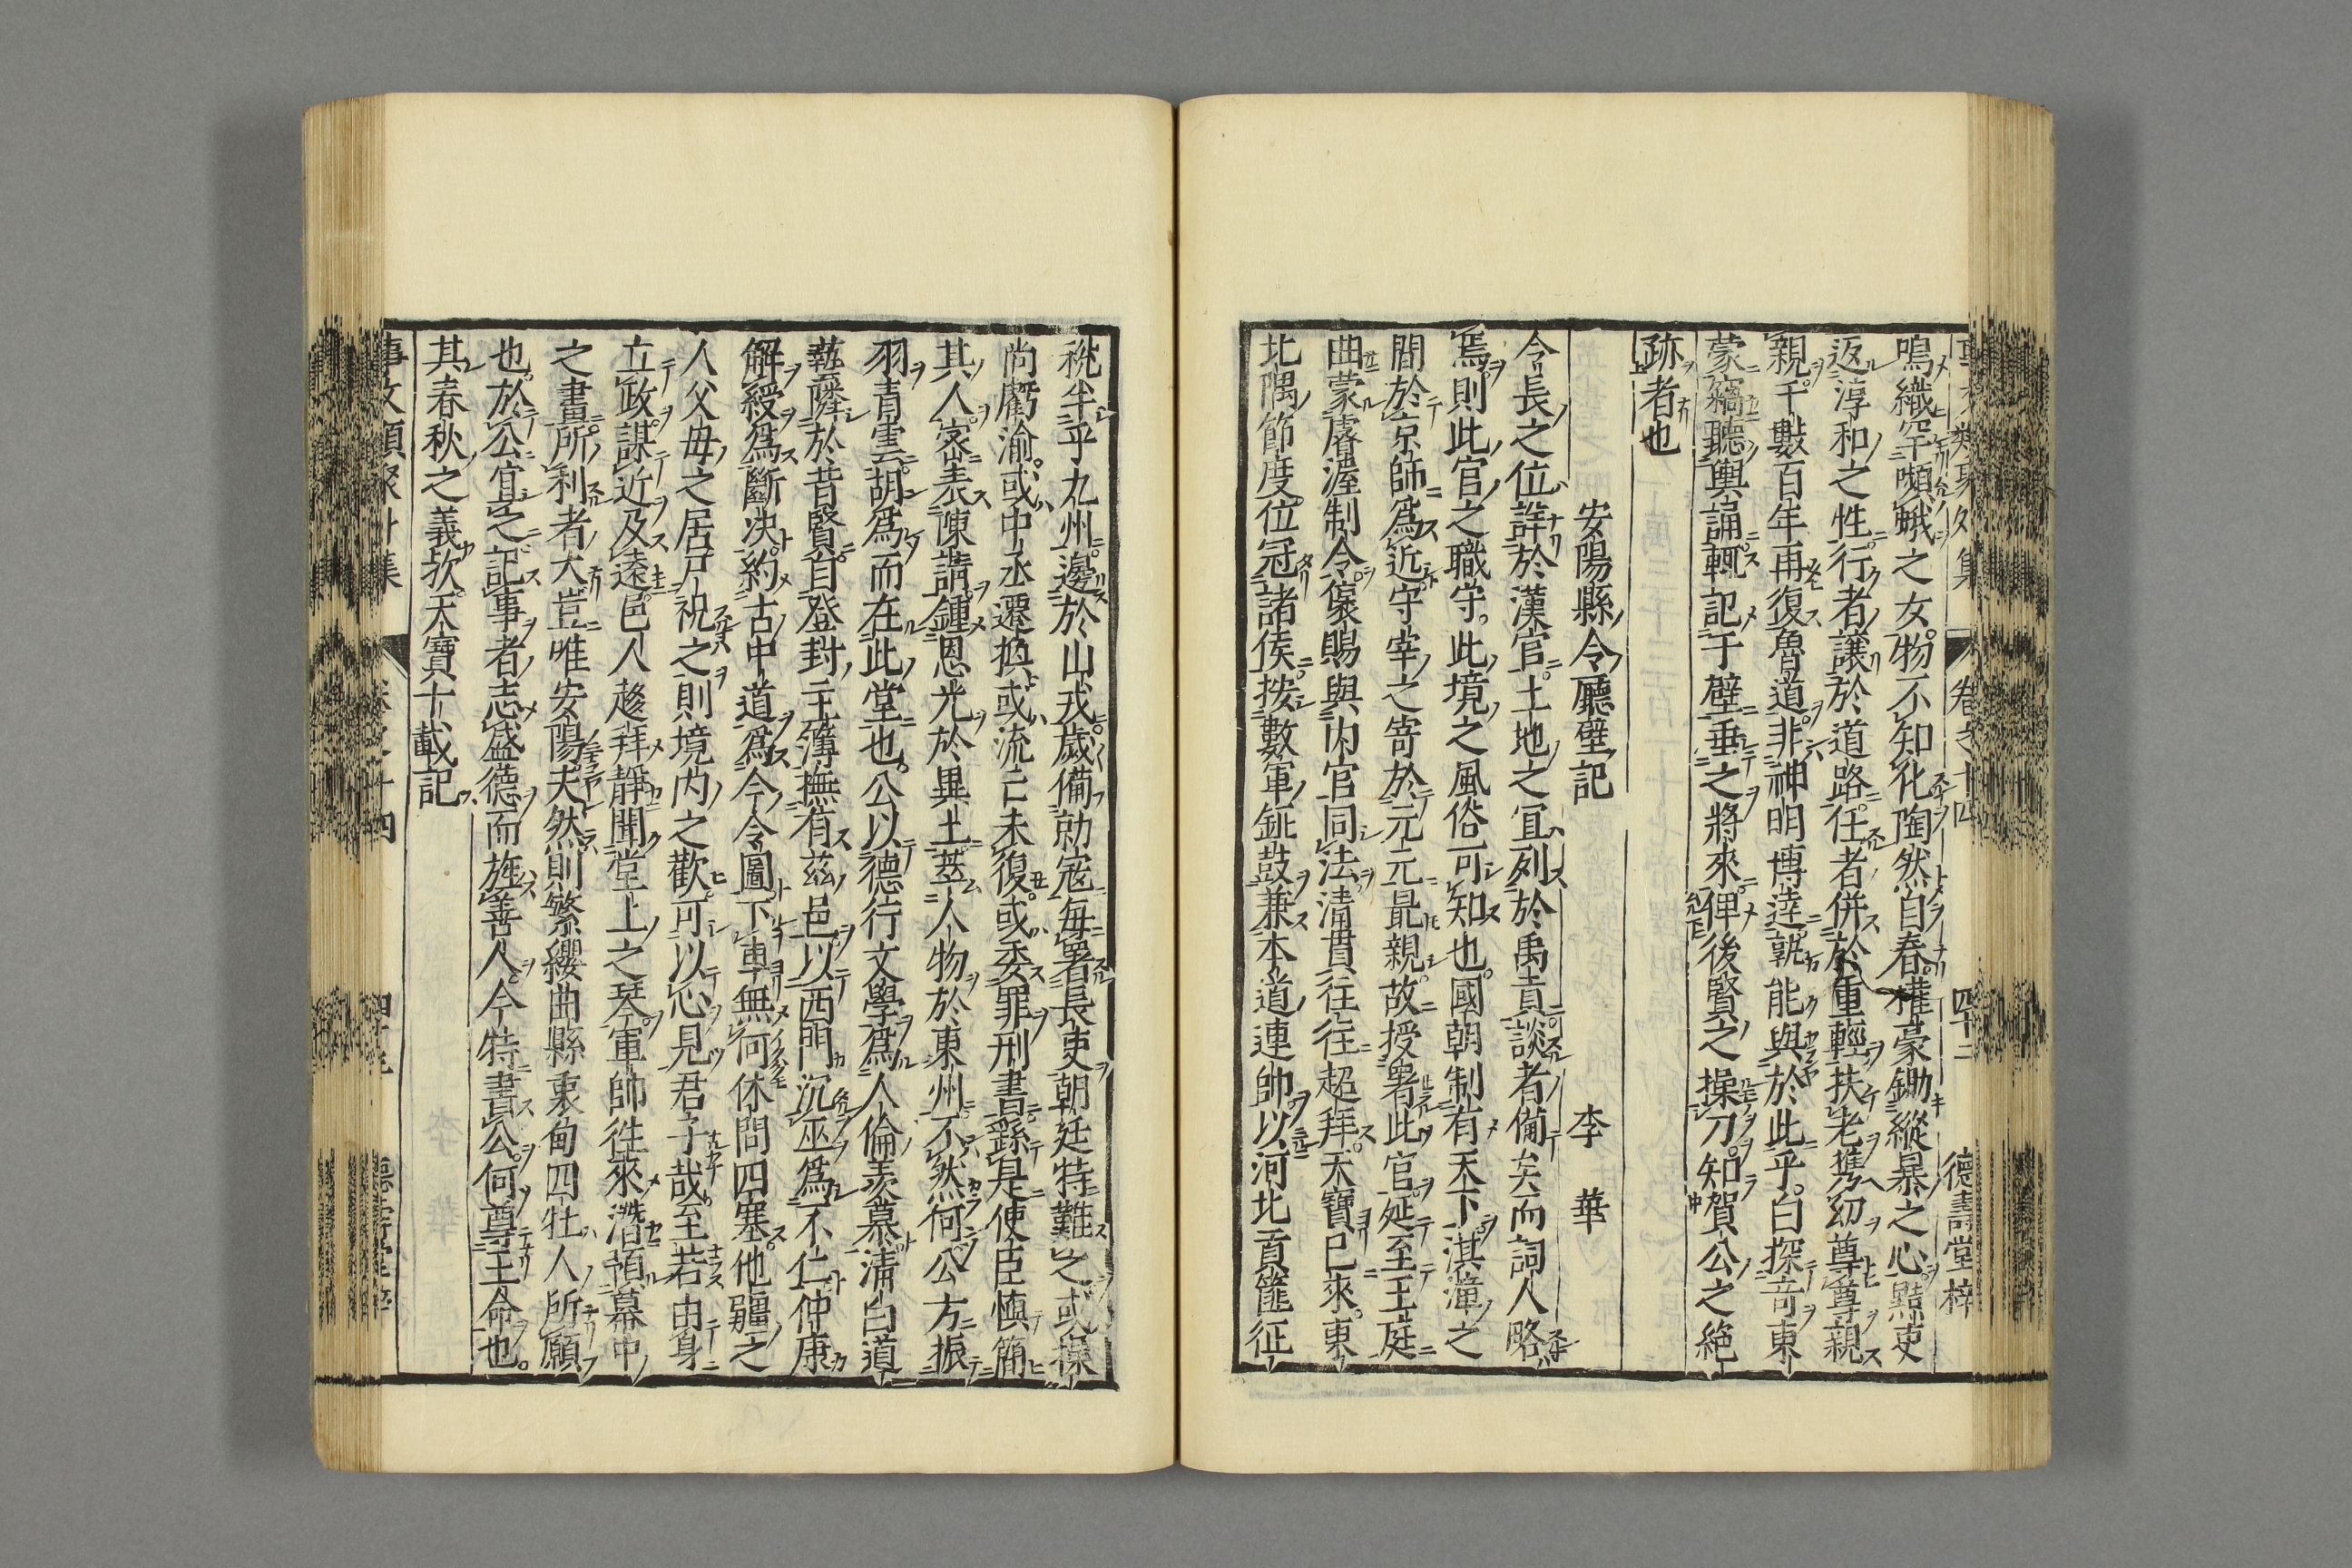 事文類聚外集 卷之十四 四十二 德壽堂梓
鳴織罕嚬蛾之女物不知化陶然自春權豪鋤縱暴之心黠吏
返淳和之性行者讓於道路任者併於重輕扶老携幼尊尊親
親千數百年再復魯道非神明博達孰能與於此乎白探奇東
蒙竊聽輿誦輒記于壁垂之將來俾後賢之操刀知賀公之絶
跡者也
安陽縣令廳壁記 李華
令長之位詳於漢官土地之宜列於禹貢談者備矣而詞人略
焉則此官之職守此境之風俗可知也國朝制有天下淇漳之
間於京師爲近守宰之寄於元元最親故授署此官延至王庭
曲蒙膚渥制令褒賜與内官同法清貫往往超拜天寶已來東
北隅節度位冠諸侯按數軍鉳鼓兼本道連帥以河北貢篚征
稅半乎九州邊於山戎歲備勍寇每署長吏朝廷特難之或操
尚虧渝或中丞遷換或流亡未復或委罪刑書繇是使臣愼簡
其人密表陳請鍾恩光於異土萃人物於東州不然何公方振
羽青雲胡爲而在此堂也公以德行文學爲人倫羡慕清白道
藝隣於昔賢自登封主簿撫有茲邑以西門沉巫爲不仁仲康
解綬爲斷决約古中道爲今令圖下車無何休問四塞他疆之
人父母之居尸祝之則境内之歡可以心見君子哉至若由身
立政謀近及遠邑人趍拜靜聞堂上之琴軍帥往來潛預幕中
之畫所利者大豈唯安陽夫然則繁纓曲縣衷甸四牡人所願
也於公宜之記事者志盛德而旌善人今特書公何尊王命也
其春秋之義歟天寶十載記
事文類聚外集 卷之十四